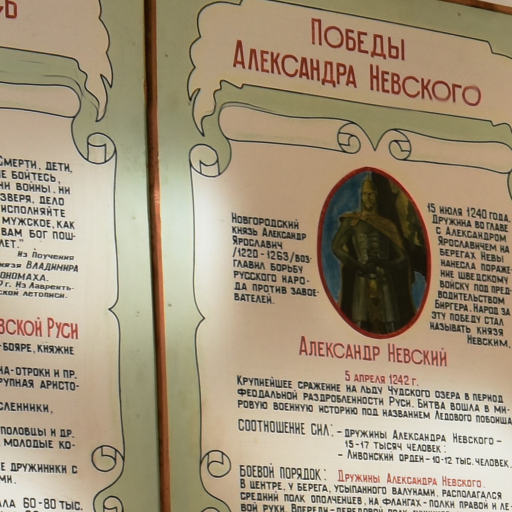 Ь
СМЕРТИ, ДЕТИ,
НЕ БОЙТЕСЬ,
НИ ВОЙНЫ, НИ
ЗВЕРЯ, ДЕЛО
ИСПОЛНЯЙТЕ
МУЖСКОЕ, КАК
ВАМ БОГ ПОШ-
ЛЕТ."
Из Поучения
князя ВЛАДИМИРА
МОНОМАХА.
г. Из Лаврентъ-
ской летописи.
ВСКОЙ РУСИ
-БОЯРЕ, КНЯЖИЕ
НА-ОТРОКИ И ПР.
РУПНАЯ АРИСТО-
СЛЕННИКИ,
ПОЛОВЦЫ И ДР.
МОЛОДЫЕ КО-
Е ДРУЖИННКИ С
МИ.
ЛА 60-80 ТЫС.
ПОБЕДЫ
АЛЕКСАНДРА НЕВСКОГО
НОВГОРОДСКИЙ
КНЯЗЬ АЛЕКСАНДР
ЯРОСЛАВИЧ
/1220-1263/ВОЗ-
ГЛАВИЛ БОРЬБУ
РУССКОГО НАРО-
ДА ПРОТИВ ЗАВОЕ-
ВАТЕЛЕЙ.
15 ИЮЛЯ 1240 ГОДА.
ДРУЖИНА ВО ГЛАВЕ
С АЛЕКСАНДРОМ
ЯРОСЛАВИЧЕМ НА
БЕРЕГАХ НЕВЫ
НАНЕСЛА ПОРАЖЕ-
НИЕ ШВЕДСКОМУ
ВОЙСКУ ПОД ПРЕД-
ВОДИТЕЛЬСТВОМ
БИРГЕРА. НАРОД ЗА
ЭТУ ПОБЕДУ СТАЛ
НАЗЫВАТЬ КНЯЗЯ
НЕВСКИМ.
АЛЕКСАНДР НЕВСКИЙ
5 АПРЕЛЯ 1242 Г.
КРУПНЕЙШЕЕ СРАЖЕНИЕ НА ЛЬДУ ЧУДСКОГО ОЗЕРА В ПЕРИОД
ФЕОДАЛЬНОЙ РАЗДРОБЛЕННОСТИ РУСИ. БИТВА ВОШЛА В МИ-
РОВУЮ ВОЕННУЮ ИСТОРИЮ ПОД НАЗВАНИЕМ ЛЕДОВОГО ПОБОИЩА
СООТНОШЕНИЕ СИЛ: - ДРУЖИНЫ АЛЕКСАНДРА НЕВСКОГО -
15-17 ТЫСЯЧ ЧЕЛОВЕК:
- ЛИВОНСКИЙ ОРДЕН - 10-12 ТЫС. ЧЕЛОВЕК.
БОЕВОЙ ПОРЯДОК: ДРУЖИНЫ АЛЕКСАНДРА НЕВСКОГО.
В ЦЕНТРЕ, У БЕРЕГА, УСЫПАННОГО ВАЛУНАМИ, РАСПОЛАГАЛСЯ
СРЕДНИЙ ПОЛК ОПОЛЧЕНЦЕВ, НА ФЛАНГАХ - ПОЛКИ ПРАВОЙ И ЛЕ-
ВОЙ РУКИ. ВПЕРЕДИ - ПЕРЕДОВОЙ ПОЛК